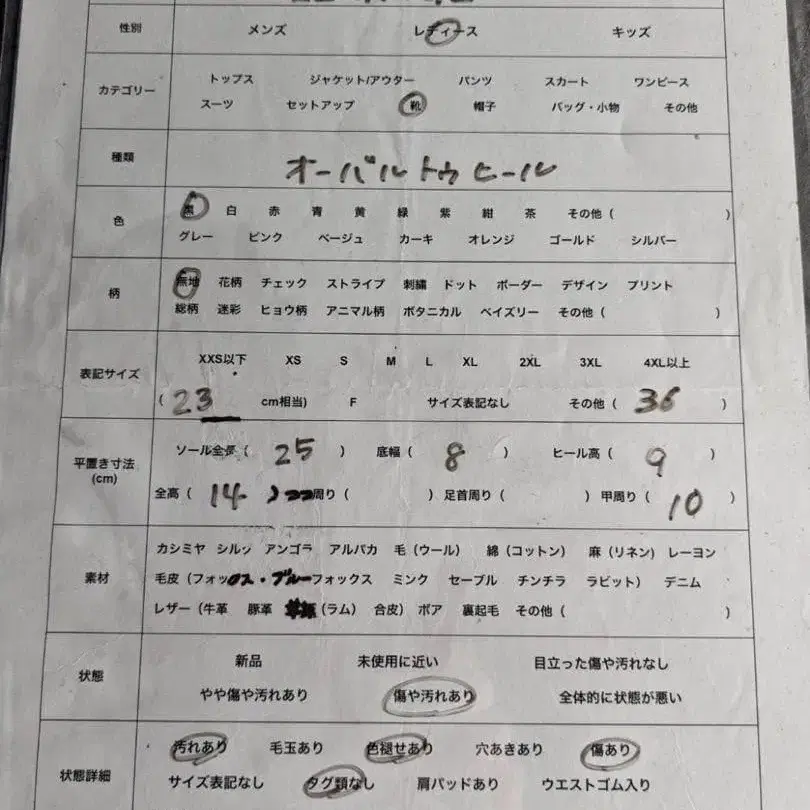 性別 メンズ レディース キッズ
カテゴリー
トップス ジャケット/アウター パンツ スカート ワンピース
スーツ セットアップ 靴 帽子 バッグ・小物 その他
種類 オーバルトゥヒール
色
黒 白 赤 青 黄 緑 紫 紺 茶 その他 ( )
グレー ピンク ベージュ カーキ オレンジ ゴールド シルバー
柄
無地 花柄 チェック ストライプ 刺繍 ドット ボーダー デザイン プリント
総柄 迷彩 ヒョウ柄 アニマル柄 ボタニカル ペイズリー その他 ( )
表記サイズ
XXS以下 XS S M L XL 2XL 3XL 4XL以上
( 23 cm相当) F サイズ表記なし その他 ( 36 )
平置き寸法
(cm)
ソール全長 ( 25 ) 底幅 ( 8 ) ヒール高 ( 9 )
全高 ( 14 ) 周り ( ) 足首周り ( ) 甲周り ( 10 )
素材
カシミヤ シルク アンゴラ アルパカ 毛 (ウール) 綿 (コットン) 麻 (リネン) レーヨン
毛皮 (フォックス・ブルーフォックス ミンク セーブル チンチラ ラビット) デニム
レザー (牛革 豚革 (ラム) 合皮) ボア 裏起毛 その他 ( )
状態
新品 未使用に近い 目立った傷や汚れなし
やや傷や汚れあり 傷や汚れあり 全体的に状態が悪い
状態詳細
汚れあり 毛玉あり 色褪せあり 穴あきあり 傷あり
サイズ表記なし タグ類なし 肩パッドあり ウエストゴム入り